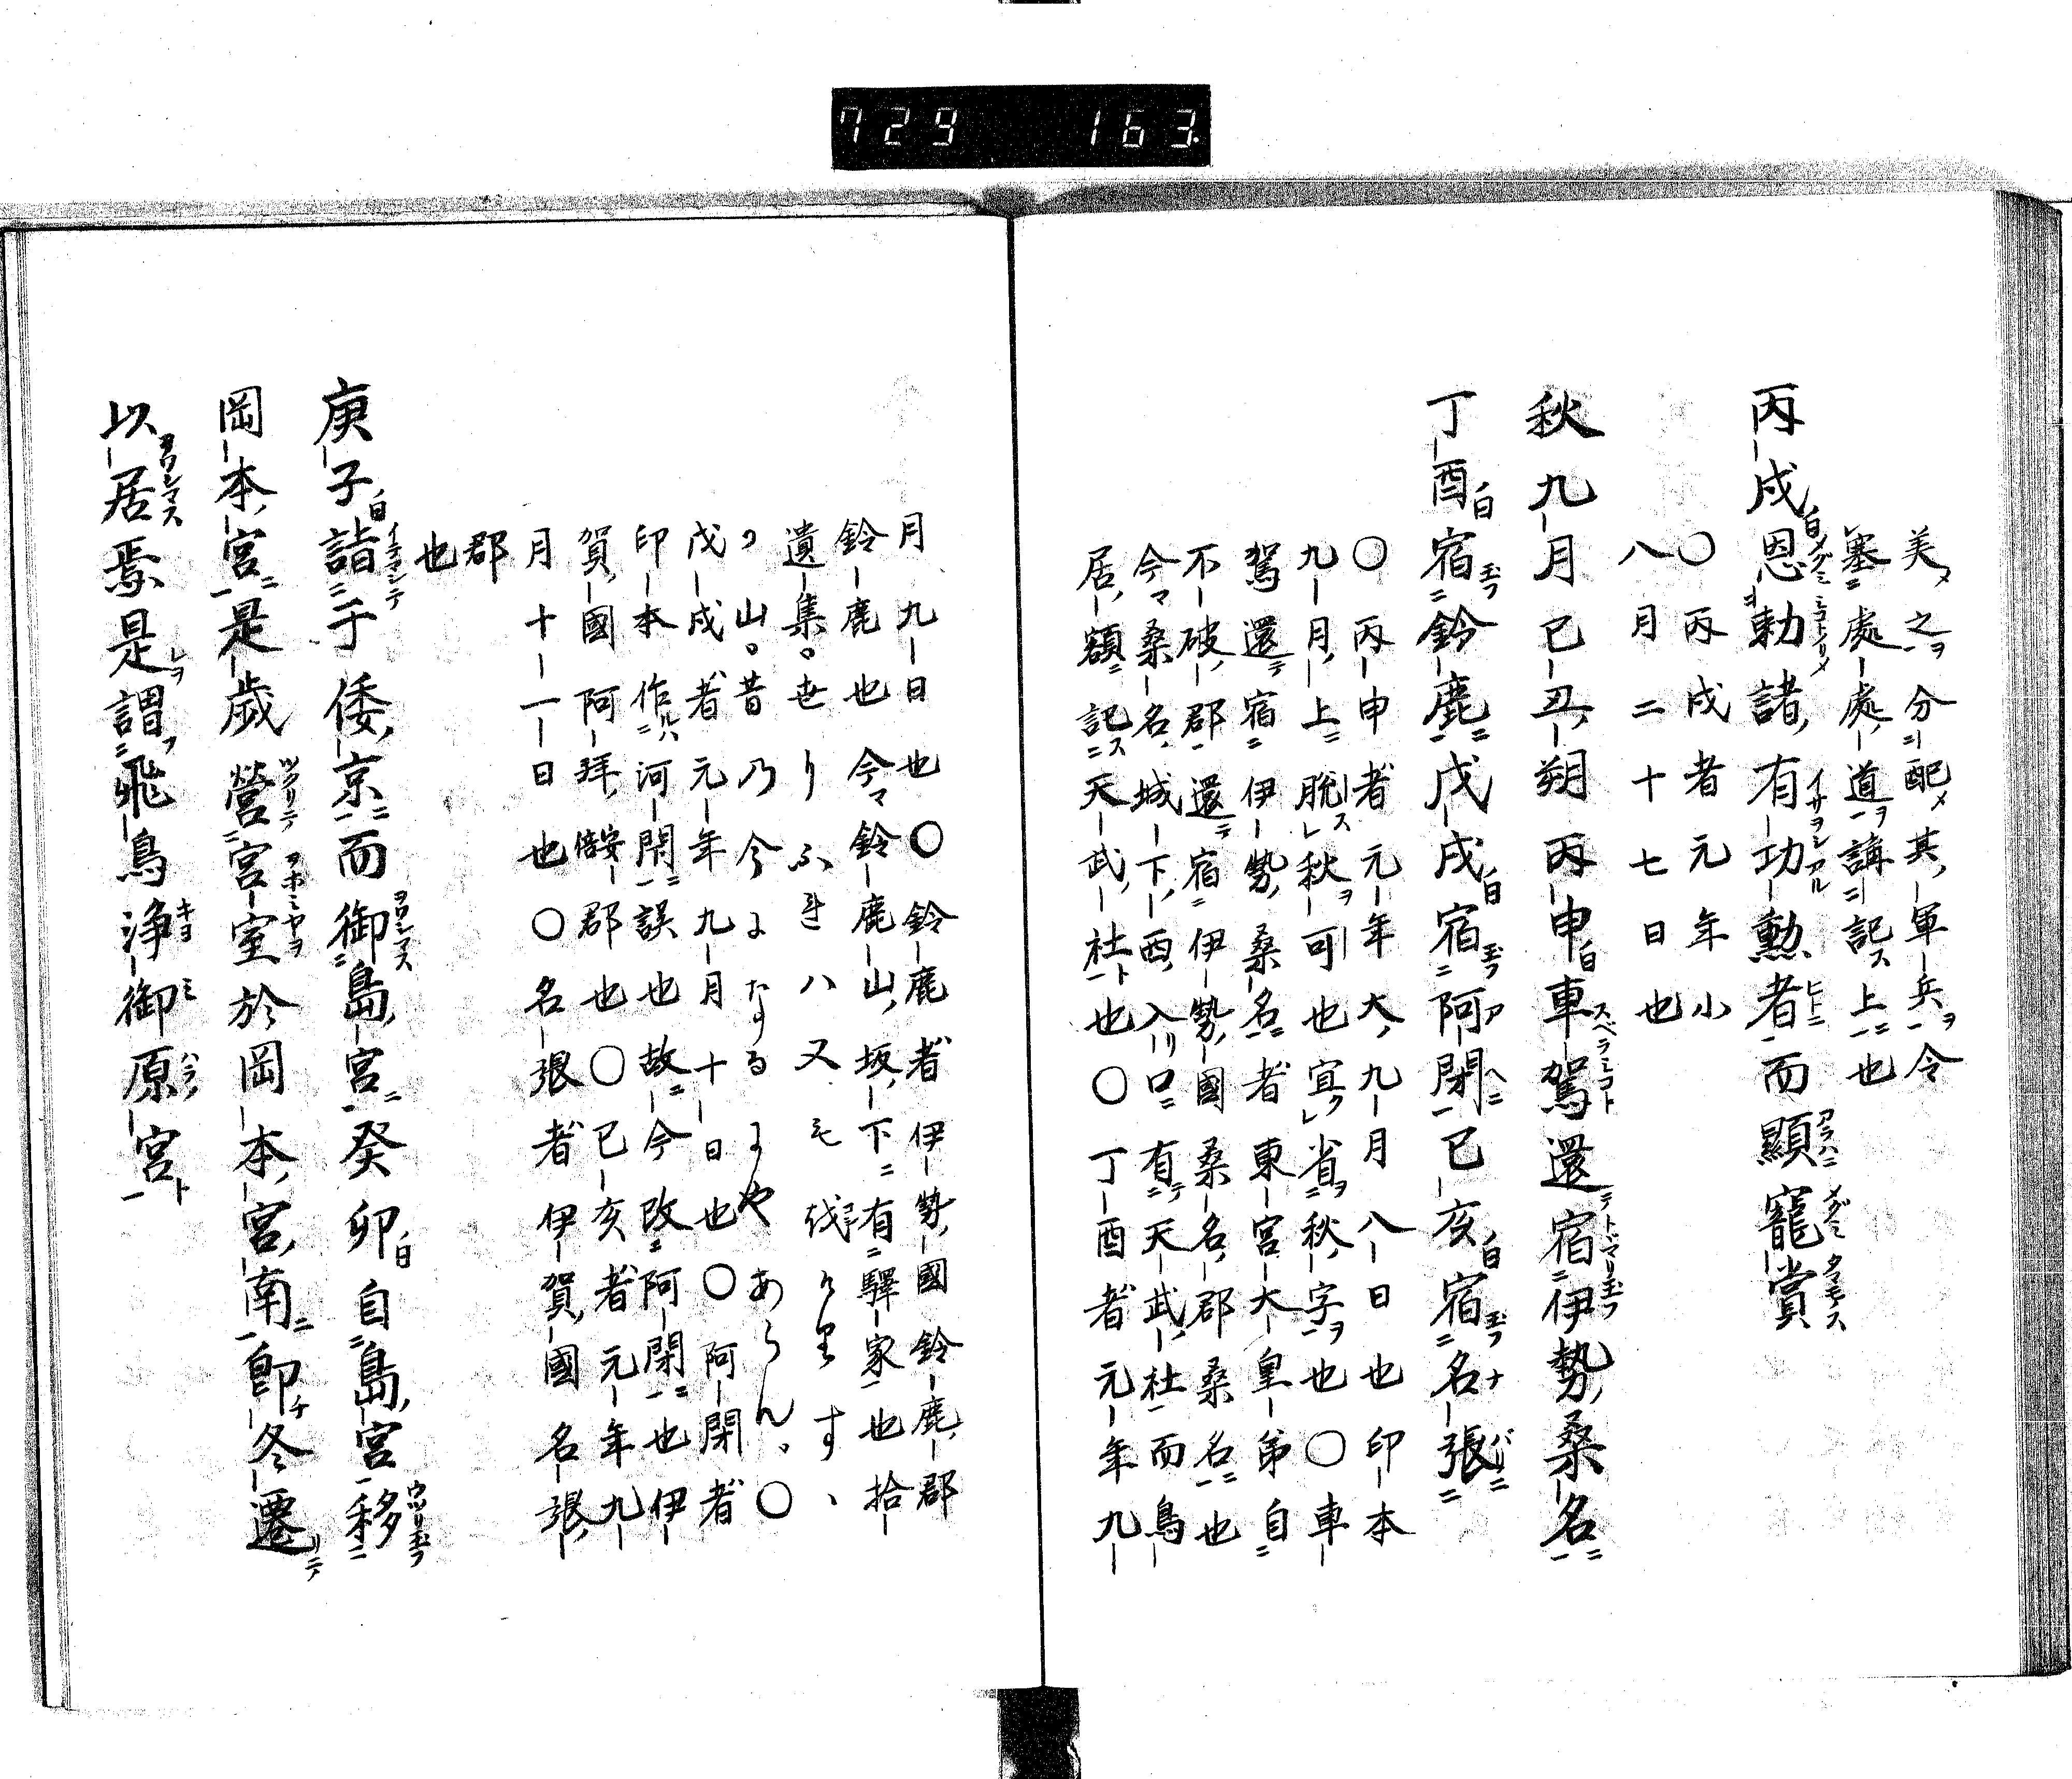 729 163
美之分配其軍兵令
塞處處道講記上也
丙戌恩勅諸有功勲者而顯寵賞
〇丙戌者元年小
八月二十七日也
秋九月己丑朔丙申車駕還宿伊勢桑名
丁酉宿鈴鹿戊戌宿阿閇己亥宿名張
〇丙申者元年大九月八日也印本
九月上脱秋可也宜省秋字也〇車
駕還宿伊勢桑名者東宮大皇弟自
不破郡還宿伊勢國桑名郡桑名也
今桑名城下西入口有天武社而鳥
居額記天武社也〇丁酉者元年九
月九日也〇鈴鹿者伊勢國鈴鹿郡
鈴鹿也今鈴鹿山坂下有驛家也拾
遺集世りふれハ又も
山昔乃今になるにやあらん〇
戊戌者元年九月十日也〇阿閇者
印本作河閇誤也故今改阿閇也伊
賀國阿拜郡也〇己亥者元年九
月十一日也〇名張者伊賀國名張
郡
也
庚子詣于倭京而御島宮癸卯自島宮移
岡本宮是歳營宮室於岡本宮南即冬遷
以居焉是謂飛鳥浄御原宮